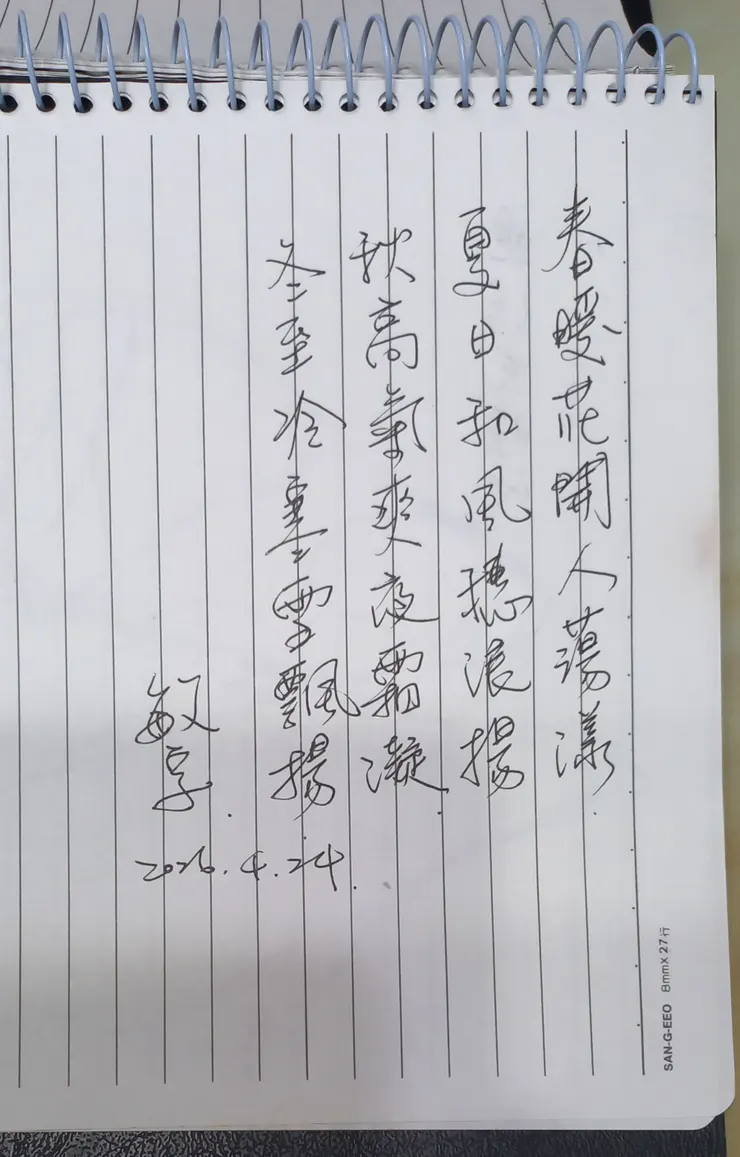 春暖花開人蕩漾
夏日和風穩浪揚
秋高氣爽夜霜凝
冬至冷墨雪飄揚
敏享.
2026.4.24.
SAN-G-EEO 8mm X 27行